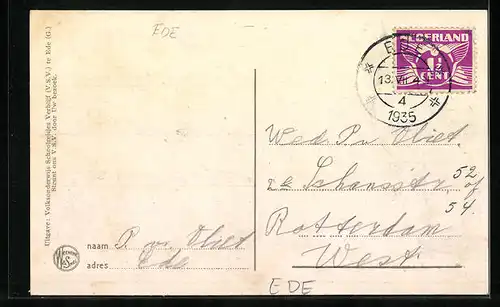 EDE
Uitgave: Volksonderwijs Schoolreisjes Verblijf (V.S.V.) te Ede (G.)
Steunt ons V.S.V. door Uw bezoek.
NEDERLAND
1½
CENT
EDE
13.VII
4
1935
Wed P. v. Vliet.
2e Schansstr 52
of
54.
Rotterdam
West.
naam P. v. Vliet
adres Ede
EDE